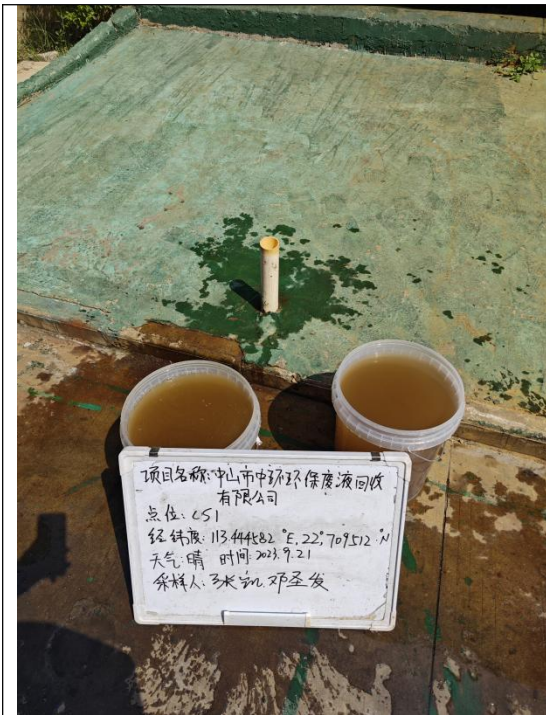 项目名称:中山市中环环保废液回收
有限公司
点位:LS1
经纬度:113.444582 °E, 22.709512 °N
天气:晴 时间:2023.9.21
采样人:张凯 邓圣发